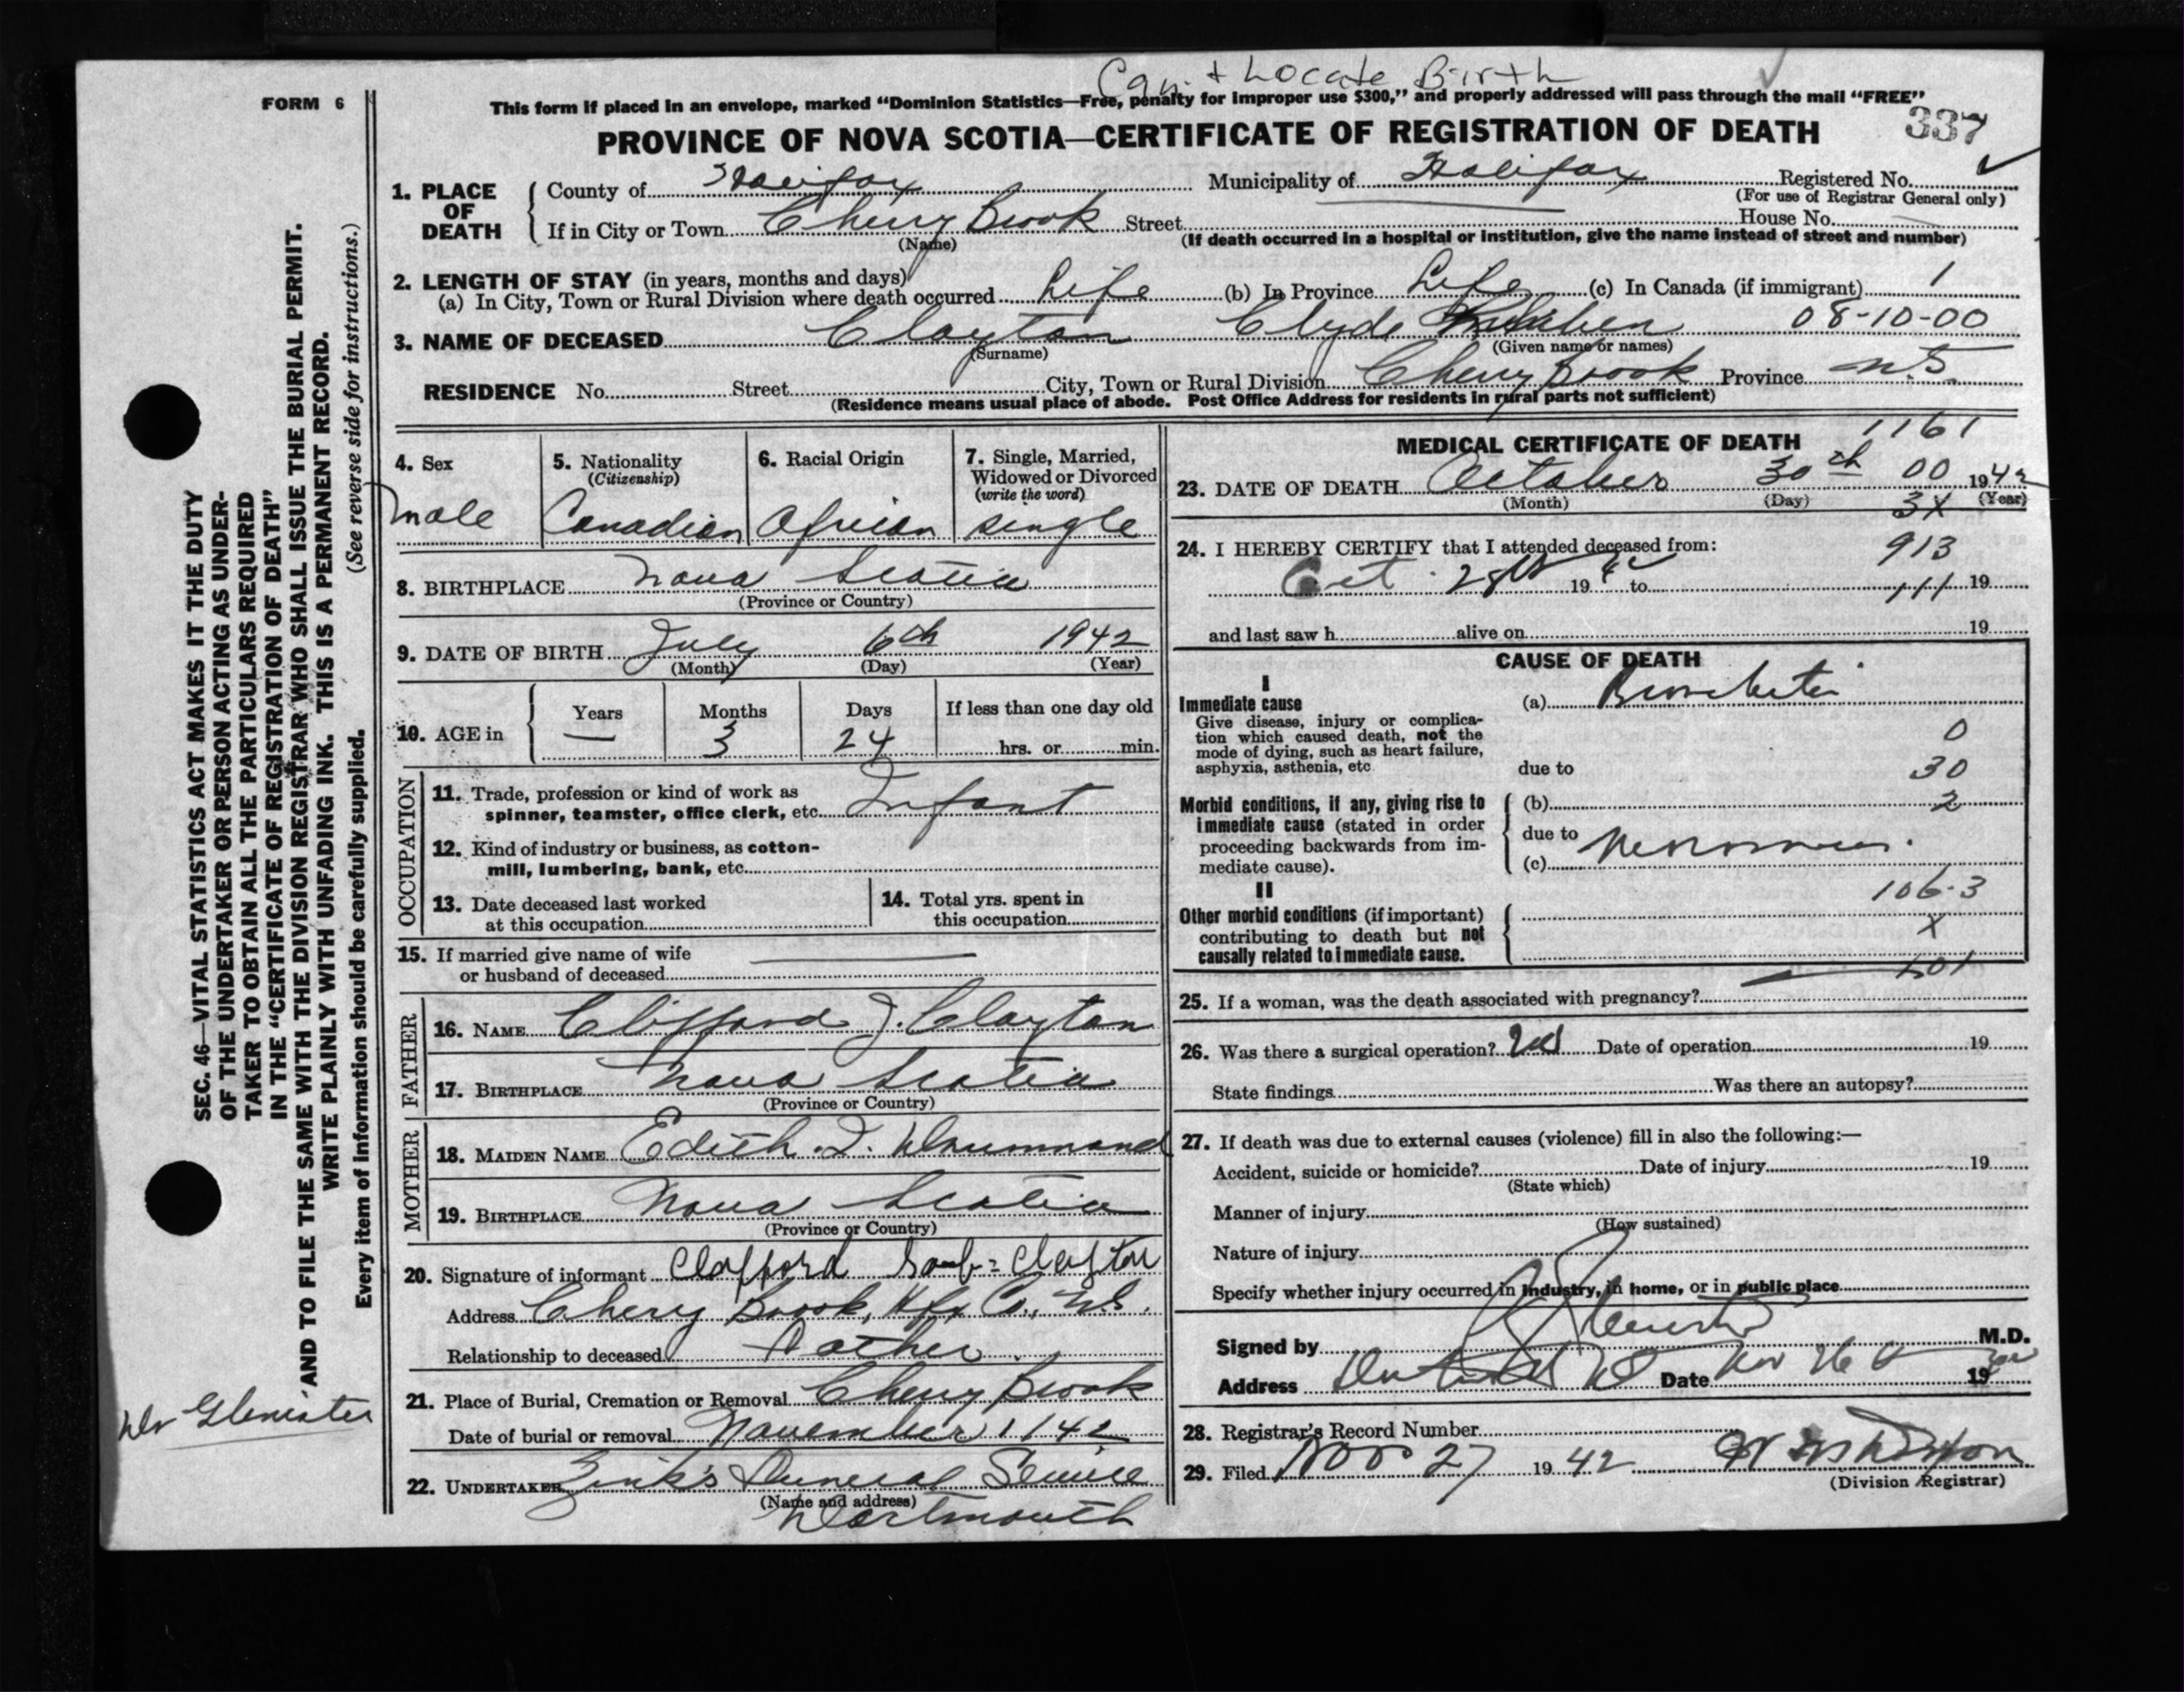 Can't Locate Birth
FORM 6
This form if placed in an envelope, marked “Dominion Statistics—Free, penalty for improper use $300,” and properly addressed will pass through the mail “FREE”
PROVINCE OF NOVA SCOTIA—CERTIFICATE OF REGISTRATION OF DEATH 337
1. PLACE OF DEATH
County of Halifax Municipality of Halifax Registered No.
(For use of Registrar General only)
If in City or Town Cherry Brook Street House No.
(Name) (If death occurred in a hospital or institution, give the name instead of street and number)
2. LENGTH OF STAY (in years, months and days)
(a) In City, Town or Rural Division where death occurred Life (b) In Province Life (c) In Canada (if immigrant) 1
3. NAME OF DECEASED Clayton Clyde 08-10-00
(Surname) (Given name or names)
RESIDENCE No. Street City, Town or Rural Division Cherry Brook Province N.S.
(Residence means usual place of abode. Post Office Address for residents in rural parts not sufficient)
4. Sex
male
5. Nationality
(Citizenship)
Canadian
6. Racial Origin
African
7. Single, Married,
Widowed or Divorced
(write the word)
single
8. BIRTHPLACE Nova Scotia
(Province or Country)
9. DATE OF BIRTH July 6th 1942
(Month) (Day) (Year)
10. AGE in
Years Months Days If less than one day old
— 3 24 hrs. or min.
OCCUPATION
11. Trade, profession or kind of work as
spinner, teamster, office clerk, etc. Infant
12. Kind of industry or business, as cotton-
mill, lumbering, bank, etc.
13. Date deceased last worked
at this occupation
14. Total yrs. spent in
this occupation
15. If married give name of wife
or husband of deceased
FATHER
16. NAME Clifford J. Clayton
17. BIRTHPLACE Nova Scotia
(Province or Country)
MOTHER
18. MAIDEN NAME Edith. I. Drummond
19. BIRTHPLACE Nova Scotia
(Province or Country)
20. Signature of informant Clayton
Address Cherry Brook, Hfx Co., N.S.
Relationship to deceased Father
21. Place of Burial, Cremation or Removal Cherry Brook
Date of burial or removal November 1/42
22. UNDERTAKER Zink's Funeral Service
(Name and address)
Dartmouth
1161
MEDICAL CERTIFICATE OF DEATH
23. DATE OF DEATH October 30th 00 1942
(Month) (Day) 3X (Year)
24. I HEREBY CERTIFY that I attended deceased from: 913
Oct. 28th 1942 to 111 19
and last saw h alive on 19
CAUSE OF DEATH
I
Immediate cause
Give disease, injury or complica-
tion which caused death, not the
mode of dying, such as heart failure,
asphyxia, asthenia, etc
(a) Bronchitis
0
due to 30
Morbid conditions, if any, giving rise to
immediate cause (stated in order
proceeding backwards from im-
mediate cause).
(b) 2
due to
(c)
106.3
II
Other morbid conditions (if important)
contributing to death but not
causally related to immediate cause.
X
25. If a woman, was the death associated with pregnancy?
26. Was there a surgical operation? Date of operation 19
State findings Was there an autopsy?
27. If death was due to external causes (violence) fill in also the following:—
Accident, suicide or homicide? Date of injury 19
(State which)
Manner of injury
(How sustained)
Nature of injury
Specify whether injury occurred in industry, in home, or in public place
Signed by M.D.
Address Date Nov 26 19
28. Registrar's Record Number
29. Filed Nov 27 19 42
(Division Registrar)
SEC. 46—VITAL STATISTICS ACT MAKES IT THE DUTY
OF THE UNDERTAKER OR PERSON ACTING AS UNDER-
TAKER TO OBTAIN ALL THE PARTICULARS REQUIRED
IN THE “CERTIFICATE OF REGISTRATION OF DEATH”
AND TO FILE THE SAME WITH THE DIVISION REGISTRAR WHO SHALL ISSUE THE BURIAL PERMIT.
WRITE PLAINLY WITH UNFADING INK. THIS IS A PERMANENT RECORD.
Every item of information should be carefully supplied. (See reverse side for instructions.)
Dr Glenister